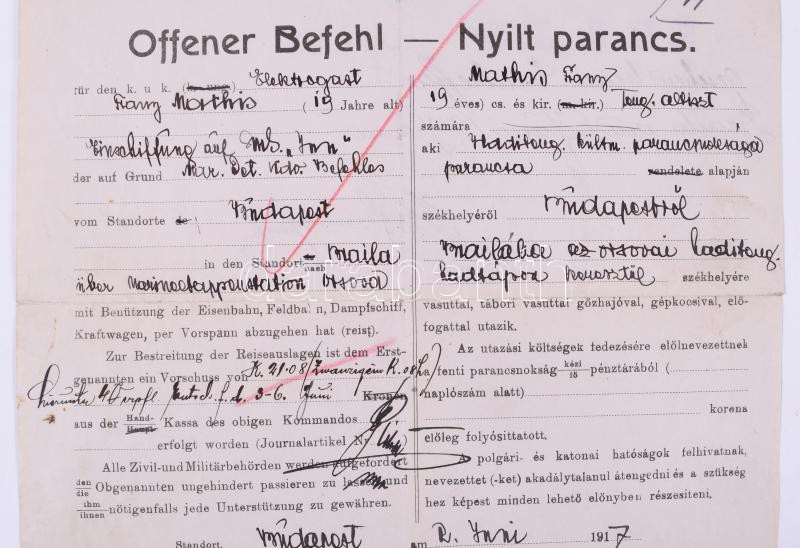 Offener Befehl — Nyilt parancs.
für den k. u. k. Elektrogast
Franz Mathis (19 Jahre alt)
Einschiffung auf S.M.S. „Inn"
der auf Grund Mar. Det. Kdo. Befehles
vom Standorte Budapest
in den Standort nach Braila
über Marineetappenstation Orsova
mit Benützung der Eisenbahn, Feldbahn, Dampfschiff,
Kraftwagen, per Vorspann abzugehen hat (reist).
Zur Bestreitung der Reiseauslagen ist dem Erst-
genannten ein Vorschuss von K. 21·08 / Zwanzigein K. 08
4 Verpfl. f. d. 3–6. Juni Kronen
aus der Hand- Haupt- Kassa des obigen Kommandos
erfolgt worden (Journalartikel Nr.
Alle Zivil-und Militärbehörden werden aufgefordert
den die Obgenannten ungehindert passieren zu lassen und
ihm ihnen nötigenfalls jede Unterstützung zu gewähren.
Standort. Budapest am 2. Juni 1917
Mathis Franz
19 éves) cs. és kir. (m. kir.) teng. altiszt
számára
aki Haditeng. parancsnoksága
parancsa rendelete alapján
székhelyéről Budapestről
Brailába az orsovai haditeng.
keresztül székhelyére
vasuttal, tábori vasuttal gőzhajóval, gépkocsival, elő-
fogattal utazik.
Az utazási költségek fedezésére előlnevezettnek
a fenti parancsnokság kézi fő pénztárából (
naplószám alatt)
korona
előleg folyósittatott.
A polgári- és katonai hatóságok felhivatnak,
nevezettet (-ket) akadálytalanul átengedni és a szükség
hez képest minden lehető előnyben részesiteni.
darabanth